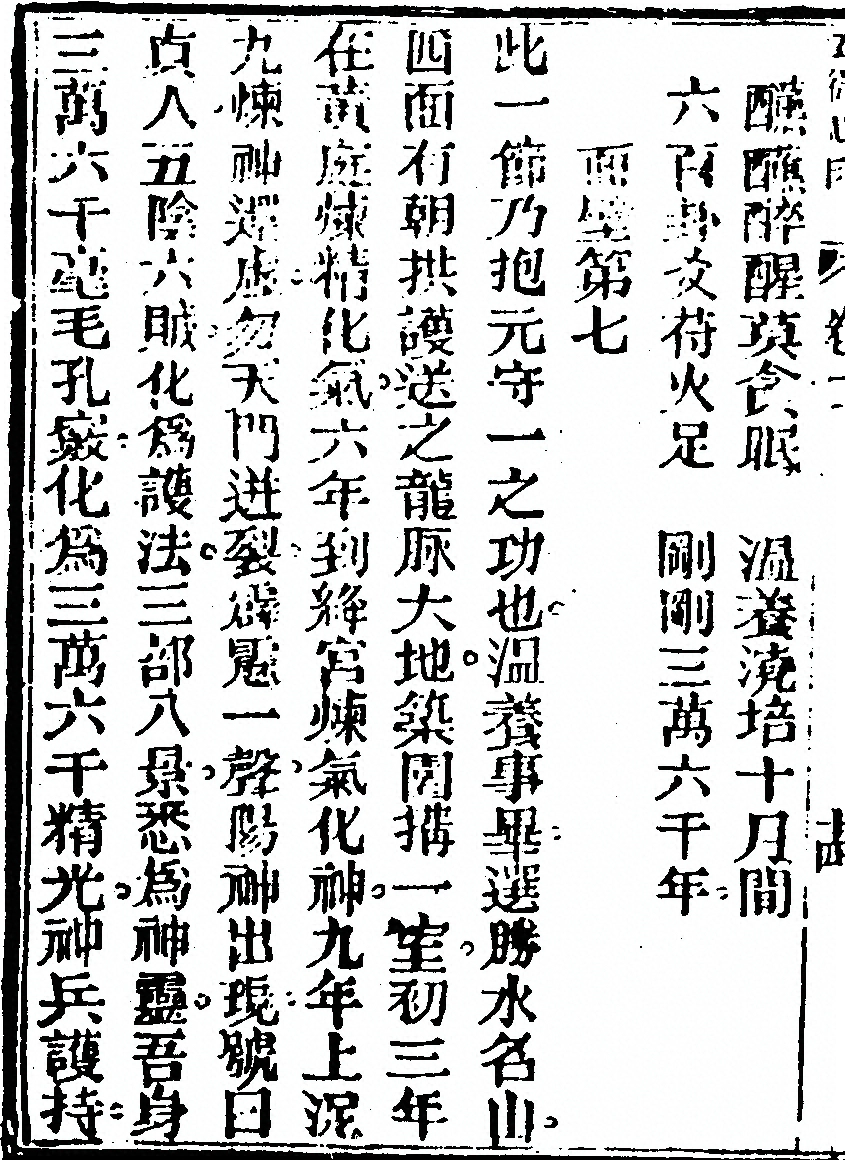 醺醺醉醒莫貪眠　溫養澆培十月間
六百卦爻符火足　剛剛三萬六千年
面壁第七
此一節乃抱元守一之功也溫養事畢選勝水名山
四面有朝拱護送之龍脉大地築圜搆一室初三年
在黃庭煉精化氣六年到絳宮煉氣化神九年上泥
九煉神還虛忽天門迸裂霹靂一聲陽神出現號曰
真人五陰六賊化爲護法三部八景悉爲神靈吾身
三萬六千毫毛孔竅化爲三萬六千精光神兵護持